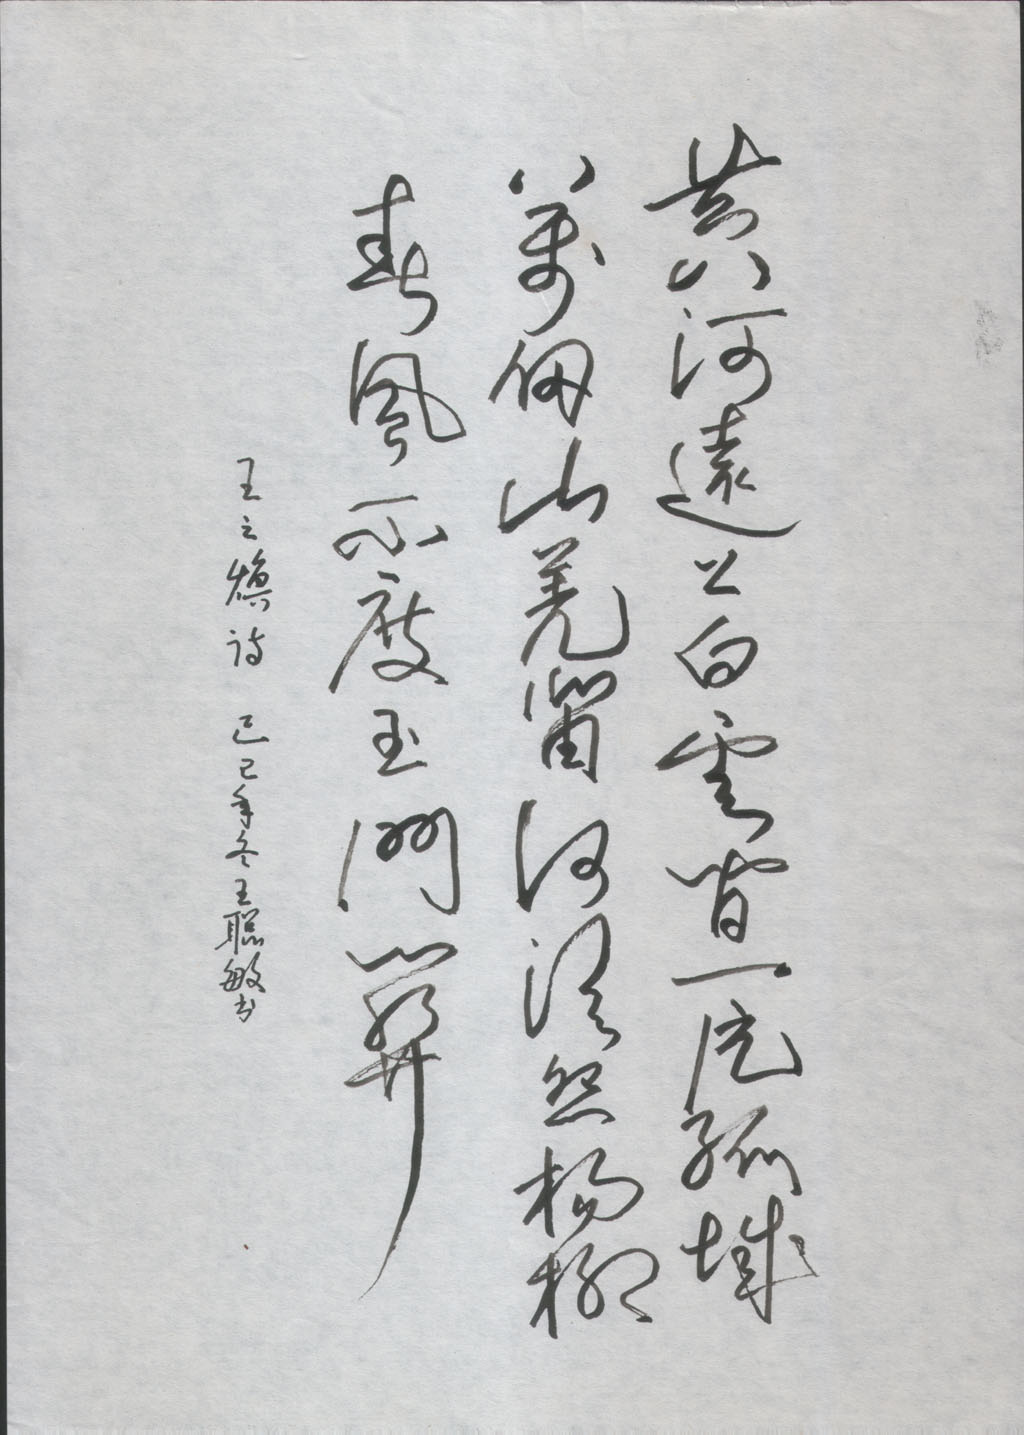 黃河遠上白雲間一片孤城
萬仞山羌笛何須怨楊柳
春風不度玉門關
王之煥诗 己巳年冬王聰敏书